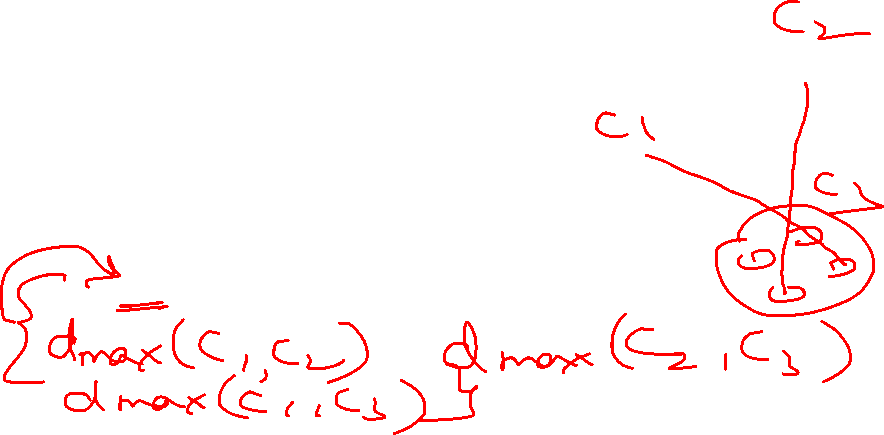 C2
C1
C3
dmax(C1,C2) dmax(C2,C3)
dmax(C1,C3)